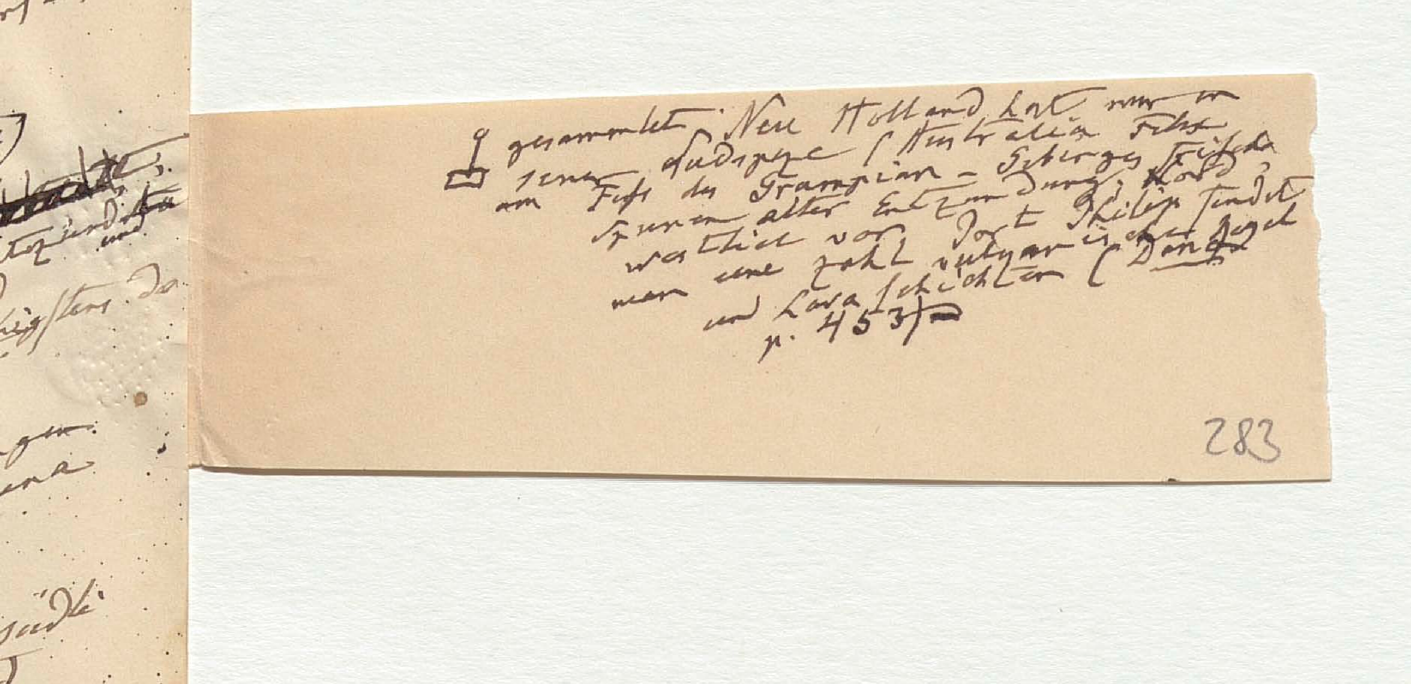 gesammlet. Neu Holland hat nur in
seiner Südspize (Australia Felix
am Fuss des Grampian-Gebirges frische
Spuren alter Entzündung; Nord-
westlich von Port Philip findet
man eine Zahl vulkanischer Kegel
und Lavaschichten (Dana
p. 453)
283
und
südli